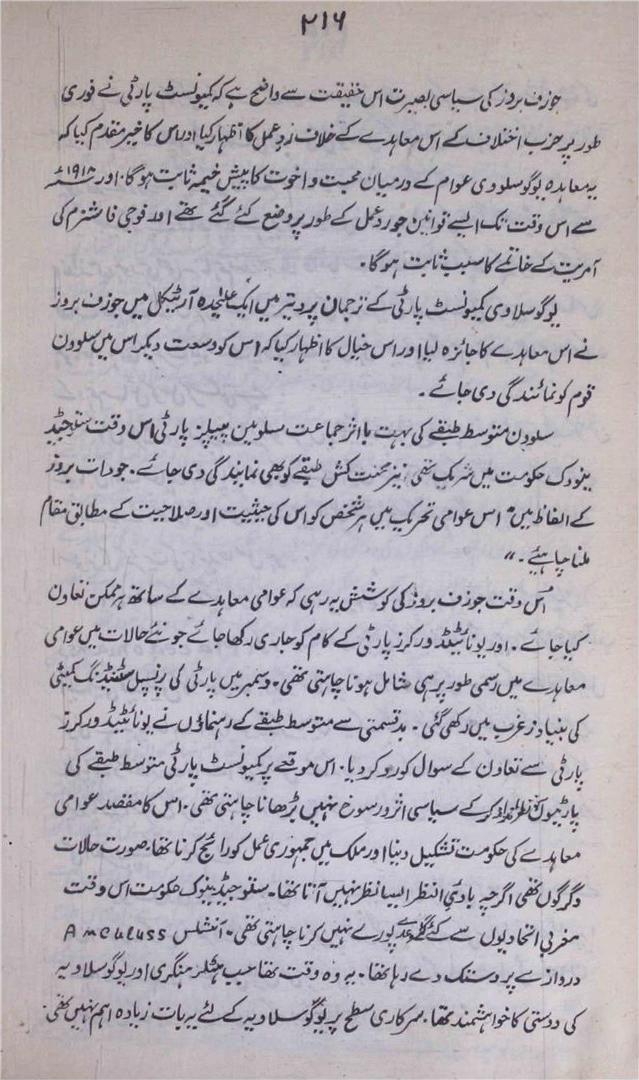 ۲۱۶
جوزف بروز کی سیاسی بصیرت اس حقیقت سے واضح ہے کہ کمیونسٹ پارٹی نے فوری
طور پر حزب اختلاف کے اس معاہدے کے خلاف ردِ عمل کا اظہار کیا اور اس کا خیر مقدم کیا کہ
یہ معاہدہ یوگوسلووی عوام کے درمیان محبت و اخوت کا پیش خیمہ ثابت ہوگا۔ اور ۱۹۱۸ء
سے اس وقت تک ایسے قوانین جو ردِ عمل کے طور پر وضع کئے گئے تھے اور فوجی فاشزم کی
آمریت کے خاتمے کا سبب ثابت ہوگا۔
یوگوسلاوی کمیونسٹ پارٹی کے ترجمان پردتیر میں ایک علیٰحدہ آرٹیکل میں جوزف بروز
نے اس معاہدے کا جائزہ لیا اور اس خیال کا اظہار کیا کہ اس کو وسعت دیکر اس میں سلوون
قوم کو نمائندگی دی جائے۔
سلوون متوسط طبقے کی بہت با اثر جماعت سلوبین پیپلز پارٹی اس وقت
ینووک حکومت میں شریک تھی نیز محنت کش طبقے کو بھی نمایندگی دی جائے۔ جو دات بروز
کے الفاظ میں " اس عوامی تحریک میں ہر شخص کو اس کی حیثیت اور صلاحیت کے مطابق مقام
ملنا چاہیئے۔ "
اس وقت جوزف بروز کی کوشش یہ رہی کہ عوامی معاہدے کے ساتھ ہر ممکن تعاون
کیا جائے۔ اور یونائیٹڈ ورکرز پارٹی کے کام کو جاری رکھا جائے جو نئے حالات میں عوامی
معاہدے میں رسمی طور پر ہی شامل ہونا چاہتی تھی۔ دسمبر میں پارٹی کی پرنسپل سٹینڈنگ کمیٹی
کی بنیاد زغرب میں رکھی گئی۔ بدقسمتی سے متوسط طبقے کے رہنماؤں نے یونائیٹڈ ورکرز
پارٹی سے تعاون کے سوال کو رد کر دیا۔ اس موقعے پر کمیونسٹ پارٹی متوسط طبقے کی
پارٹیوں کو نظر انداز کر کے سیاسی اثر و رسوخ نہیں بڑھانا چاہتی تھی۔ اس کا مقصد عوامی
معاہدے کی حکومت تشکیل دینا اور ملک میں جمہوری عمل کو رائج کرنا تھا۔ صورت حالات
دگرگوں تھی اگرچہ بادی النظر ایسا نظر نہیں آتا تھا۔ سفوجیڈینوک حکومت اس وقت
مغربی اتحادیوں سے کئے گئے وعدے پورے نہیں کرنا چاہتی تھی۔ آنشلس Amculuss
دروازے پر دستک دے رہا تھا۔ یہ وہ وقت تھا جب ہٹلر ہنگری اور یوگوسلاویہ
کی دوستی کا خواہشمند تھا۔ سرکاری سطح پر یوگوسلاویہ کے لئے یہ بات زیادہ اہم نہیں تھی۔